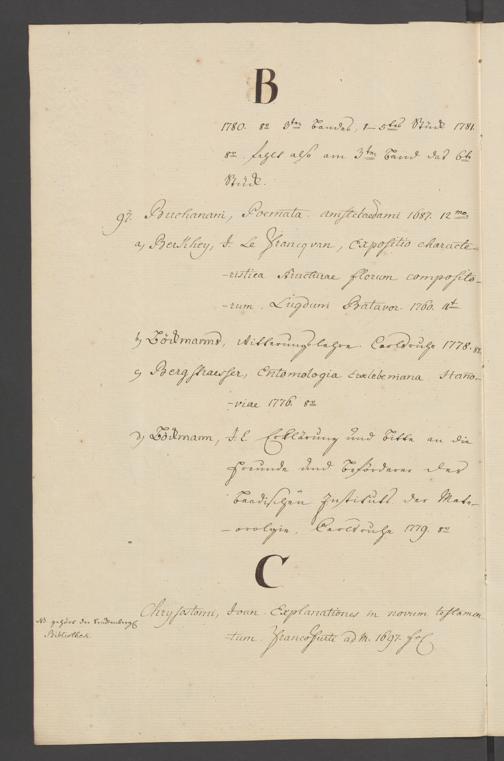 B
1780. 8º 3ten Bandes, 1–5tes Stück 1781.
8º. fehlt also am 3ten Band das 6te
Stück.
97. Buchanani, Poemata. Amstelaedami 1687. 12mo
a) Berkhey, J. Le Francq van, Expositio characte-
-ristica structurae florum composito-
-rum. Lugduni Batavor. 1760. 4t
b) Böckmanns, Witterungslehre. Carlsruhe 1778. 8º
c) Bergstraesser, Entomologia Erxlebeniana Hano-
-viae 1776. 8º
d) Böckmann, J. L. Erklärung und Bitte an die
Freunde und Beförderer des
Baadischen Instituts der Mete-
-orologie. Carlsruhe 1779. 8º
C
Chrysostomi, Joan. Explanationes in novum testamen-
-tum. Francofurti ad M. 1697. fol
NB gehört der Senckenberg
Bibliothek.